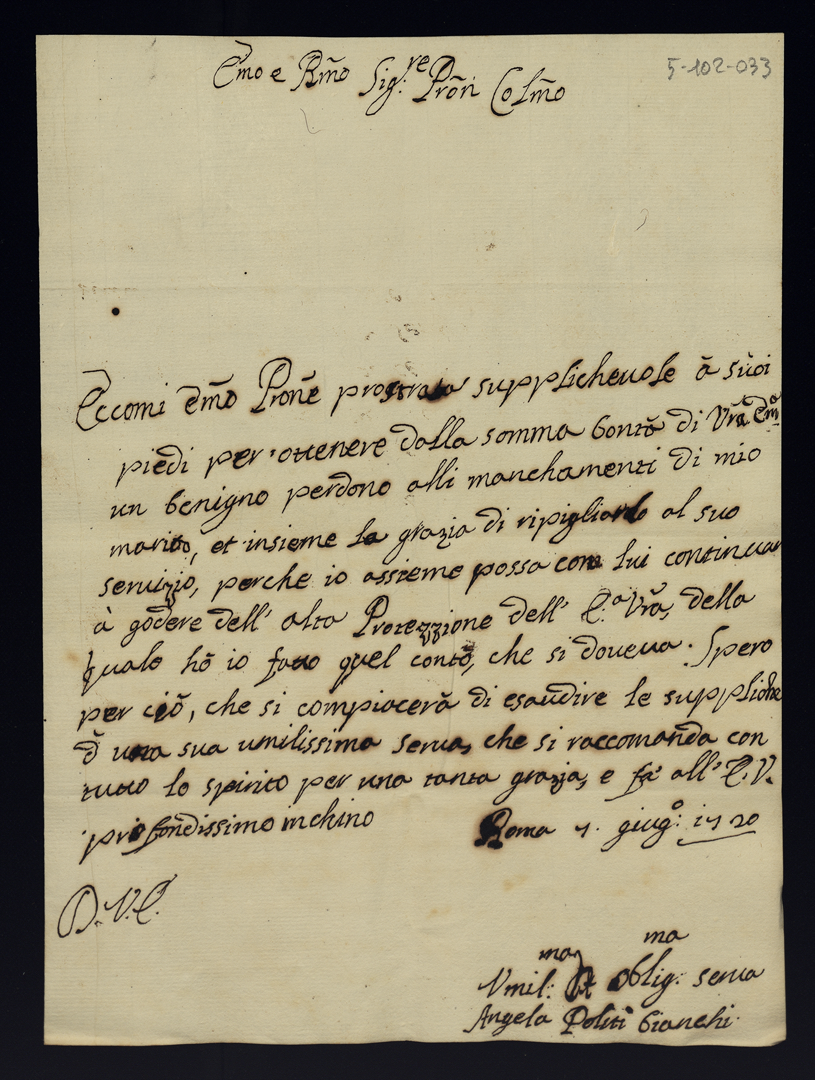 5-102-033
Emo e Rmo Sig.re Prōn Colmo
Eccomi Emo Prone prostrata supplicheuole à suoi
piedi per ottenere dalla somma bontà di Vra Emª
un benigno perdono alli manchamenti di mio
marito, et insieme la grazia di ripigliarlo al suo
servizio, perche io assieme possa con lui continuar
à godere dell' alta Protezzione dell' E.ª Vra, della
quale hò io fatto quel conto, che si doueua. Spero
per ciò, che si compiacerà di esaudire le suppliche
d' una sua umilissima serua, che si raccomanda con
tutto lo spirito per una tanta grazia, e fà all' E.V.
profondissimo inchino
Roma 7. giug.o 1720
D. V. E.
Vmil:ma et oblig:ma serua
Angela Politi Bianchi